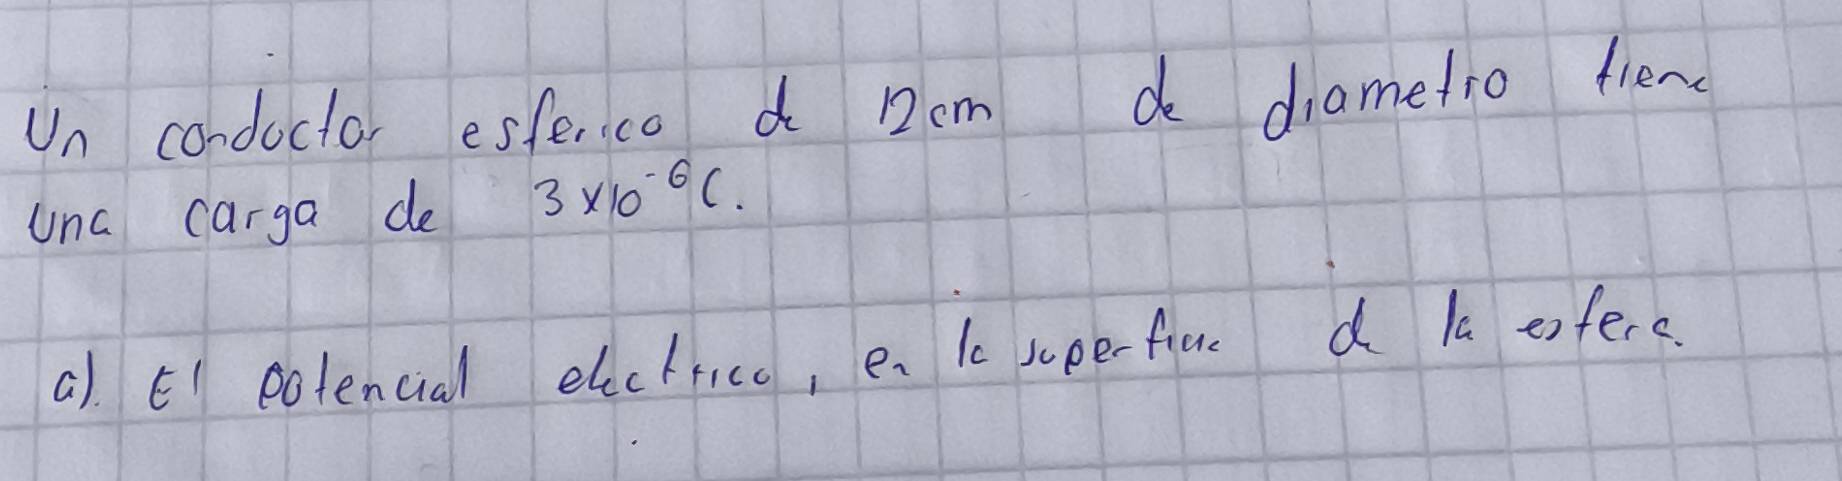 Un conductor esferico de 12cm de diametro tiene
una carga de 3x10⁻⁶C.
a). El potencial electrico, en la superficie de la esfera.